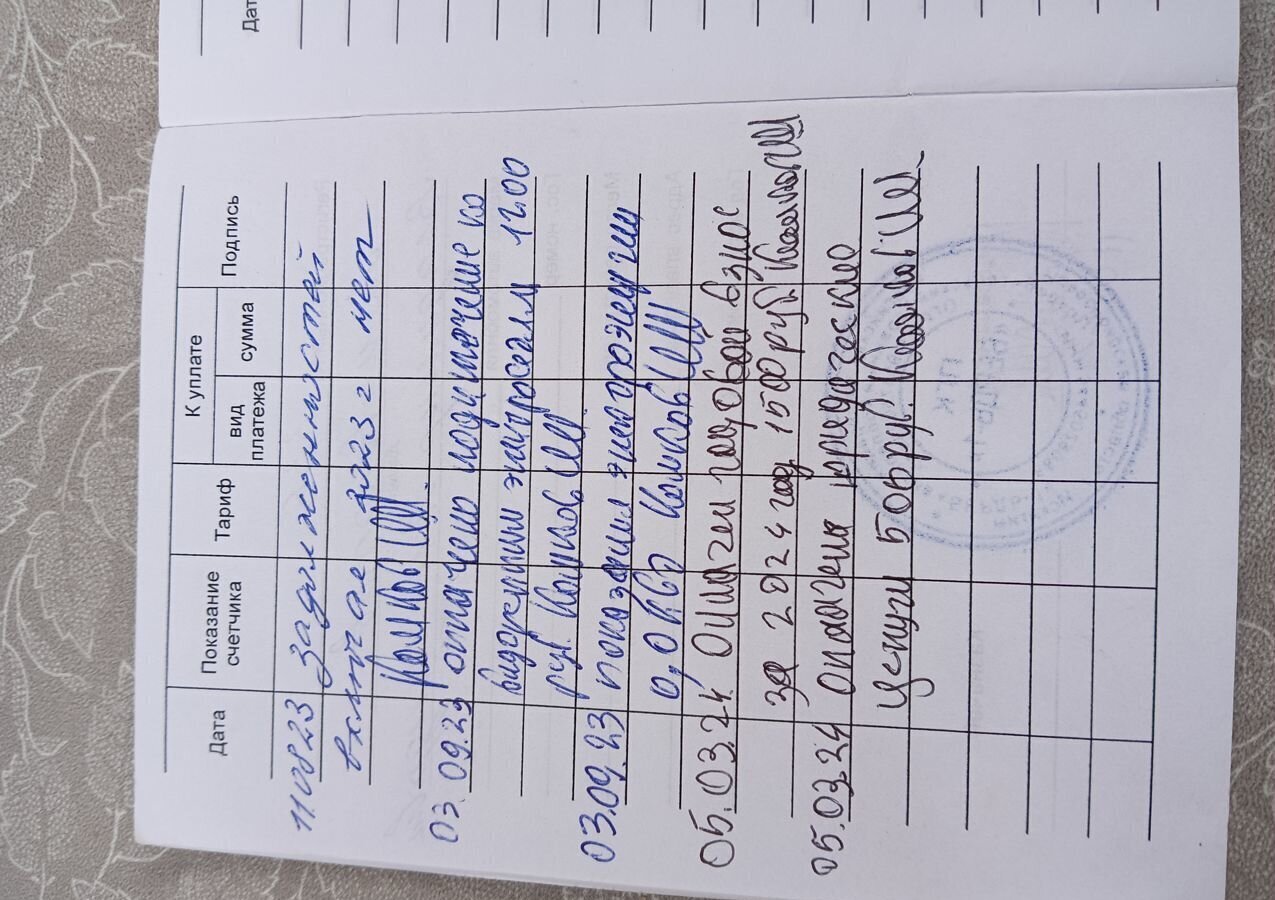 Дат
Дата Показание счетчика Тариф К уплате Подпись
вид платежа сумма
11.08.23 задолженностей
включая 2023 г нет
Комков
03.09.23 оплачено подключение ко
видеокам электросети 12.00
руб. Комков
03.09.23 показания электроэнергии
0,0 Комков
05.03.24. Оплачен годовой взнос
за 2024 год 1500 руб.
05.03.24 оплачены юридические
услуги 50 руб.